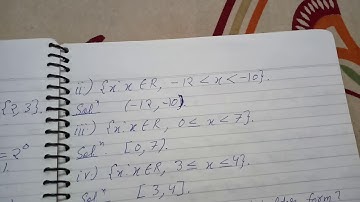 ii) {x: x ∈ R, -12 < x < -10}.
Solⁿ (-12, -10)
{2, 3}.
iii) {x: x ∈ R, 0 ≤ x < 7}.
= 2⁰
Solⁿ. [0, 7).
iv) {x: x ∈ R, 3 ≤ x ≤ 4}.
Solⁿ [3, 4].
form?